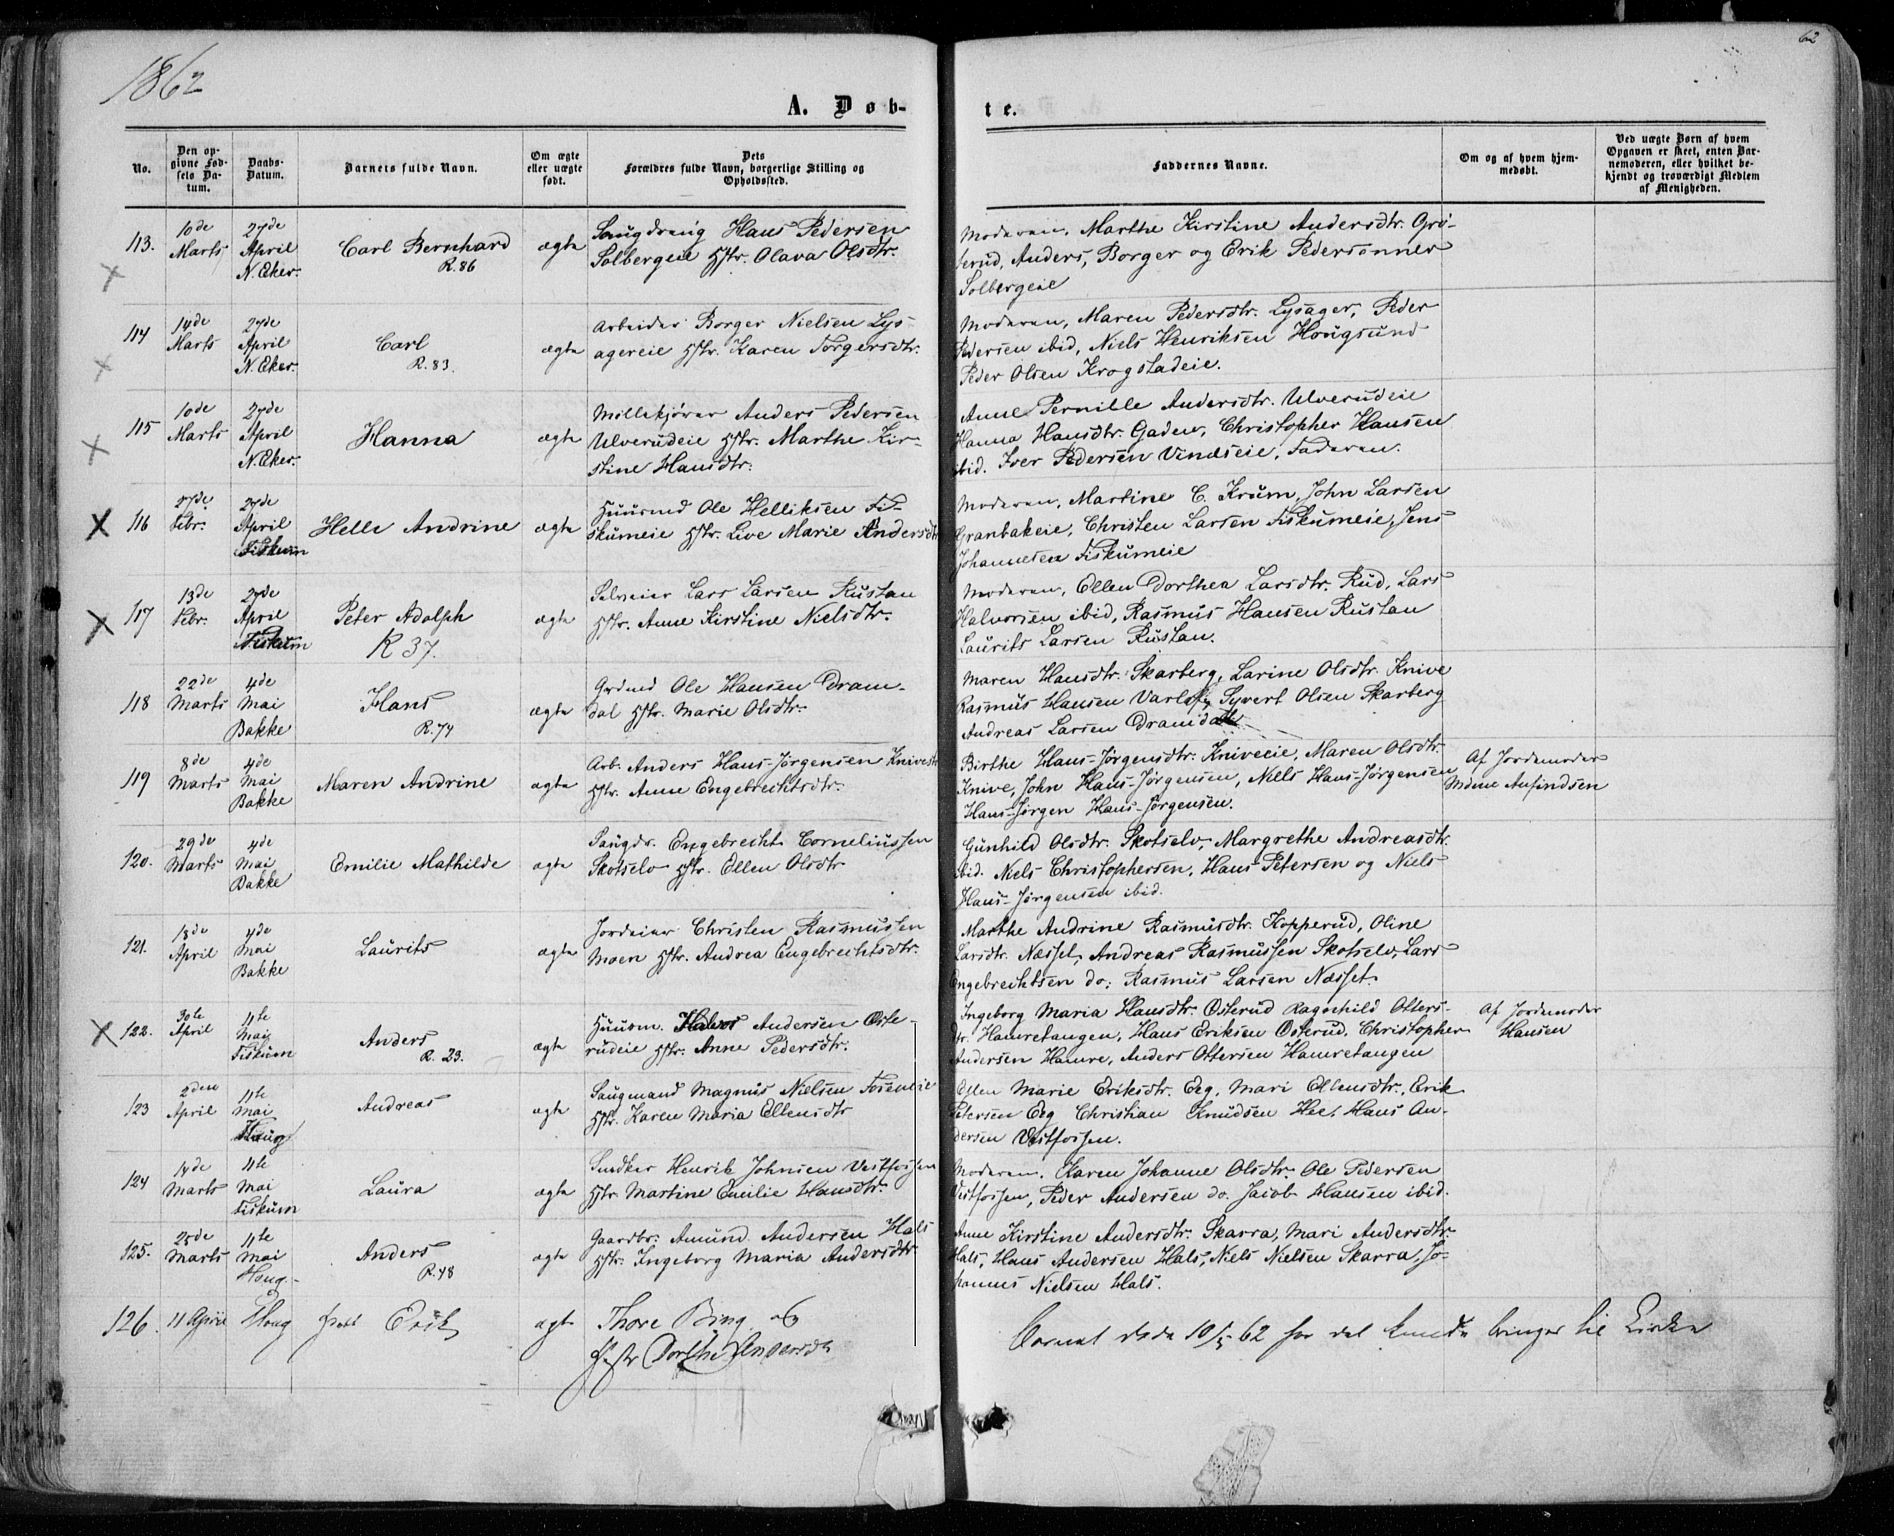 1862
62
A. Døb-
te.
No.
Den op-
givne Fød-
sels Da-
tum.
Daabs-
Datum.
Barnets fulde Navn.
Om ægte
eller uægte
født.
Dets
Forældres fulde Navn, borgerlige Stilling og
Opholdssted.
Faddernes Navne.
Om og af hvem hjem-
medøbt.
Ved uægte Børn af hvem
Opgaven er skeet, enten Bar-
nemoderen, eller hvilket be-
kjendt og troværdigt Medlem
af Menigheden.
113.
10de
Marts
27de
April
N. Eker.
Carl Bernhard
R. 86
ægte
Saugdreng Hans Pedersen
Solbergeie Hstr. Olava Olsdtr.
Moderen, Marthe Kirstine Andersdtr. Grø-
terud, Anders, Borger og Erik Pedersønner
Solbergeie
114
14de
Marts
27de
April
N. Eker.
Carl
R. 83.
ægte
Arbeider Borger Nielsen Lys-
agereie Hstr. Karen Torgersdtr.
Moderen, Maren Pedersdtr. Lysager, Peder
Pedersen ibid, Niels Henriksen Hougsund
Peder Olsen Krogstadeie.
115
10de
Marts
27de
April
N. Eker.
Hanna
ægte
Millekjører Anders Pedersen
Ulverudeie Hstr. Marthe Kir-
stine Hansdtr.
Anne Pernille Andersdtr. Ulverudeie
Hanna Hansdtr. Gaden, Christopher Hansen
ibid. Iver Pedersen Vendseie, Faderen.
116
27de
Febr.
27de
April
Fiskum
Helle Andrine
ægte
Huusmd Ole Helliksen Fi-
skumeie Hstr. Live Marie Andersdtr
Moderen, Martine C. Krum, John Larsen
Granbakeie, Christen Larsen Fiskumeie, Jens
Johannesen Fiskumeie
117
13de
Febr.
27de
April
Fiskum
Peter Adolph
R 37.
ægte
Selveier Lars Larsen Rustan
Hstr. Anne Kirstine Nielsdtr.
Moderen, Ellen Dorthea Larsdtr. Rud, Lars
Halvorsen ibid, Rasmus Hansen Rustan
Laurits Larsen Rustan.
118
22de
Marts
4de
Mai
Bakke
Hans
R. 74
ægte
Grdmd Ole Hansen Dram-
dal Hstr. Marie Olsdtr.
Maren Hansdtr. Skarberg, Larine Olsdtr. Knive
Rasmus Hansen Varlo, Syvert Olsen Skarberg
Andreas Larsen Dramdal
119
8de
Marts
4de
Mai
Bakke
Maren Andrine
ægte
Arb. Anders Hans-Jørgensen Knive
Hstr. Anne Engebrechtsdtr.
Birthe Hans-Jørgensdtr. Kniveeie, Maren Olsdtr.
Knive, John Hans-Jørgensen, Niels Hans-Jørgensen
Hans-Jørgen Hans-Jørgensen.
Af Jordemoder
Mdme Anfindsen
120.
29de
Marts
4de
Mai
Bakke
Emilie Mathilde
ægte
Saugdr. Engebrecht Corneliussen
Skotselv Hstr. Ellen Olsdtr
Gunhild Olsdtr. Skotselv, Margrethe Andreasdtr.
ibid. Niels Christophersen, Hans Petersen og Niels
Hans-Jørgensen ibid.
121.
18de
April
4de
Mai
Bakke
Laurits
ægte
Jordeier Christen Rasmussen
Moen Hstr. Andrea Engebrechtsdtr.
Marthe Andrine Rasmusdtr. Kopperud, Oline
Larsdtr. Næsset, Andreas Rasmussen Skotselv, Lars
Engebrechtsen do. Rasmus Larsen Næsset.
122.
30te
April
11te
Mai
Fiskum
Anders
R. 23.
ægte
Huusm. Halvor Andersen Øste-
rudeie Hstr. Anne Pedersdtr.
Ingeborg Maria Hansdtr. Østerud Ragnhild Otters-
dtr. Hamretangen, Hans Eriksen Østerud, Christopher
Andersen Hamre, Anders Ottersen Hamretangen
Af Jordemoder
Hansen
123
2den
April
11te
Mai
Houg
Andreas
ægte
Saugmand Magnus Nielsen Foseneie
Hstr. Karen Maria Ellensdtr
Ellen Marie Eriksdtr. Eeg, Mari Ellensdtr., Erik
Petersen Eeg Christian Knudsen Hee, Hans An-
dersen Vestfossen.
124
14de
Marts
11te
Mai
Fiskum
Laura
ægte
Snedker Henrik Johnsen Vestfossen
Hstr. Martine Emilie Hansdtr.
Moderen, Karen Johanne Olsdtr. Ole Pedersen
Vestfossen, Peder Andersen do. Jacob Hansen ibid.
125.
28de
Marts
11te
Mai
Houg
Anders
R. 48
ægte
Gaardbr. Amund Andersen Hals
Hstr. Ingeborg Maria Andersdtr
Anne Kirstine Andersdtr. Skarra, Mari Andersdtr.
Hals, Hans Andersen Hals, Niels Nielsen Skarra, Jo-
hannes Nielsen Hals.
126.
11 April
Houg
Erik
ægte
Thore Bing og
Hstr Dorthe
Barnet døde 10/5 62 før det kunde bringes til Kirken